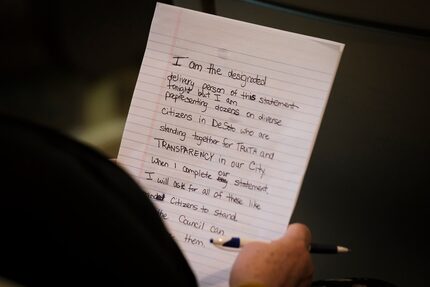 I am the designated
delivery person of this statement
tonight but I am
representing dozens on diverse
citizens in DeSoto who are
standing together for TRUTH and
TRANSPARENCY in our City.
When I complete our statement,
I will ask for all of these like
Citizens to stand
the Council can
them.